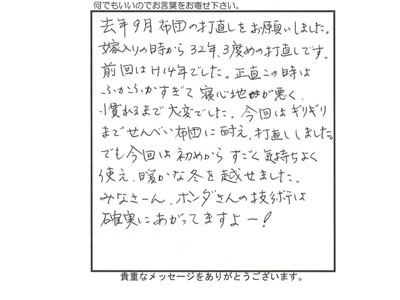 何でもいいのでお言葉をお寄せ下さい。
去年9月布団の打直しをお願いしました。
嫁入りの時から32年、3度めの打直しです。
前回はH14年でした。正直この時は
ふかふかすぎて寝心地が悪く、
慣れるまで大変でした。今回はギリギリ
までせんべい布団に耐え、打直ししました。
でも今回は初めからすごく気持ちよく
使え、暖かな冬を越せました。
みなさーん、ホンダさんの技術は
確実にあがってますよー!
貴重なメッセージをありがとうございます。